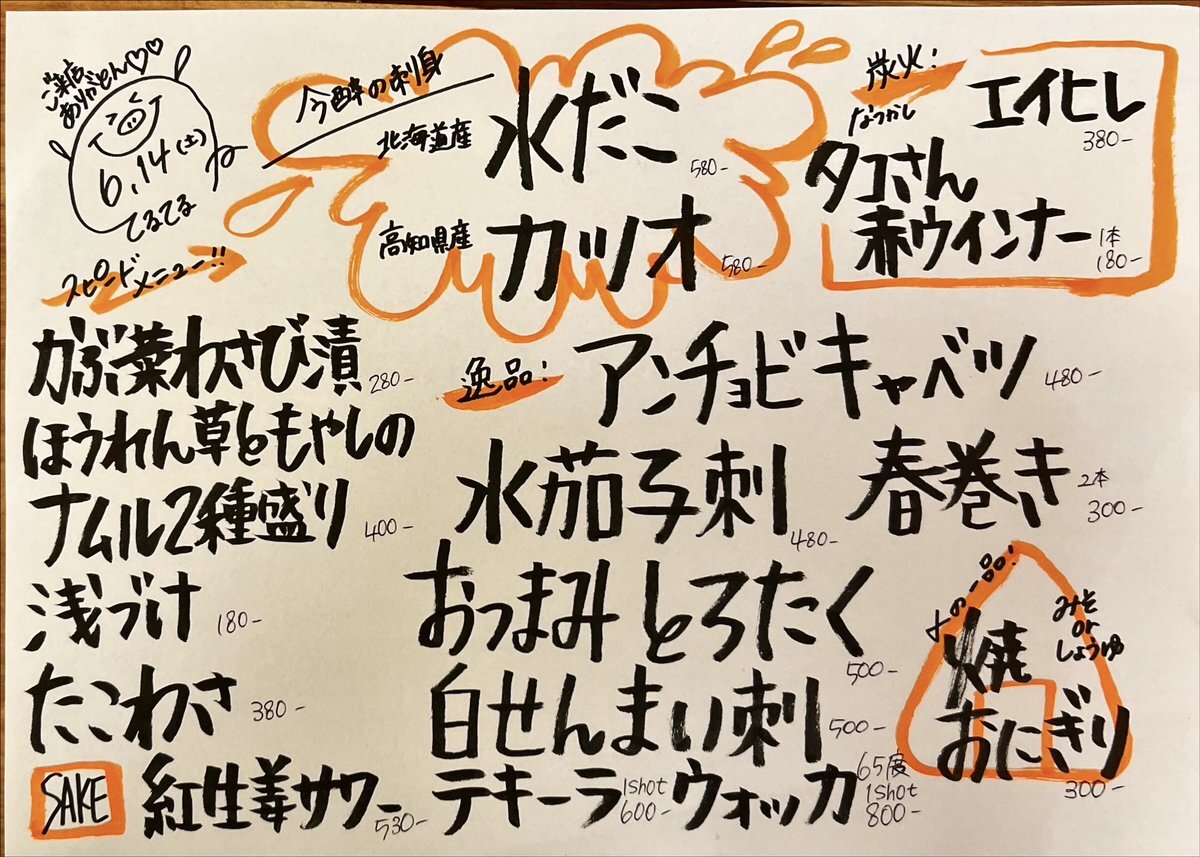 ご来店
ありがとん♡♡
6.14(土)
てるてる
今酔の刺身
北海道産
水だこ
580-
高知県産
カツオ
580-
炭火!
エイヒレ
380-
なつかし
タコさん
赤ウインナー
1本
180-
スピードメニュー!!
かぶ菜わさび漬
280-
ほうれん草ともやしの
ナムル2種盛り
400-
浅づけ
180-
たこわさ
380-
逸品!
アンチョビキャベツ
480-
水茄子刺
480-
春巻き
2本
300-
おつまみとろたく
500-
白せんまい刺
500-
〆の一品!
焼
おにぎり
みそ
or
しょうゆ
300-
SAKE
紅生姜サワー
530-
テキーラ
1shot
600-
ウォッカ
65度
1shot
800-